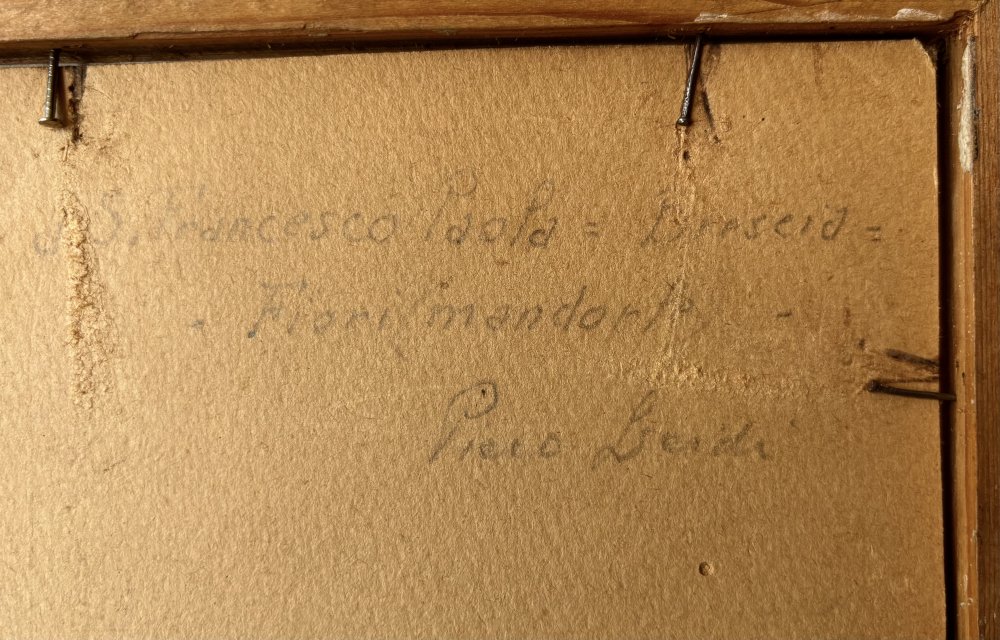 S. Francesco Paola = Brescia =
- Fiori mandorlo -
Piero